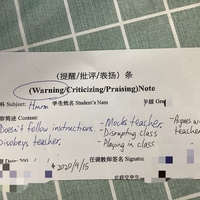 (提醒/批评/表扬) 条
(Warning/Criticizing/Praising) Note
科 Subject: Hmrm 学生姓名 Student's Nam 年级 Gra
容简述 Content: - Mocks teacher. - Argues w
Doesn't follow instructions. - Disrupting class teacher
Disobeys teacher. - Playing in class
日 Date: 200 2020/9/15 任课教师签名 Signatu